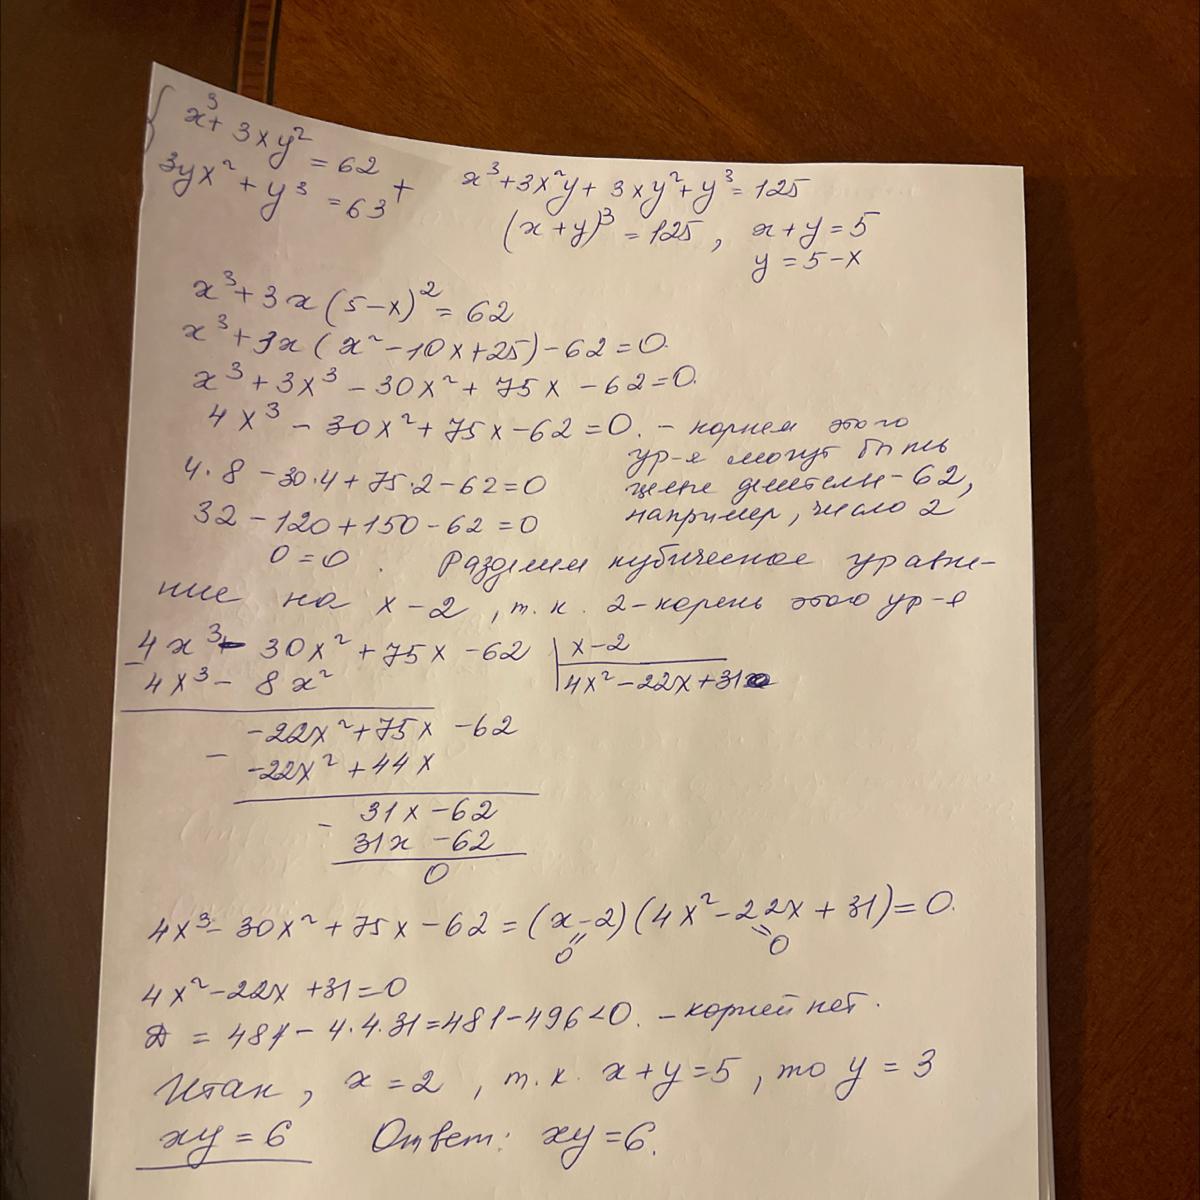 x³ + 3xy² = 62
3yx² + y³ = 63 +
x³ + 3x²y + 3xy² + y³ = 125
(x+y)³ = 125, x+y = 5
y = 5-x
x³ + 3x(5-x)² = 62
x³ + 3x(x² - 10x + 25) - 62 = 0.
x³ + 3x³ - 30x² + 75x - 62 = 0.
4x³ - 30x² + 75x - 62 = 0. - корнем этого
ур-я могут быть
4·8 - 30·4 + 75·2 - 62 = 0 целые делители - 62,
32 - 120 + 150 - 62 = 0 например, число 2
0 = 0. Разделим кубическое уравне-
ние на x-2, т.к. 2-корень этого ур-я
4x³ - 30x² + 75x - 62 | x-2
4x³ - 8x² 4x² - 22x + 31
- -22x² + 75x - 62
-22x² + 44x
- 31x - 62
31x - 62
0
4x³ - 30x² + 75x - 62 = (x-2)(4x² - 22x + 31) = 0.
0 0
4x² - 22x + 31 = 0
D = 484 - 4·4·31 = 481 - 496 < 0. - корней нет.
Итак, x = 2, т.к. x+y = 5, то y = 3
xy = 6 Ответ: xy = 6.